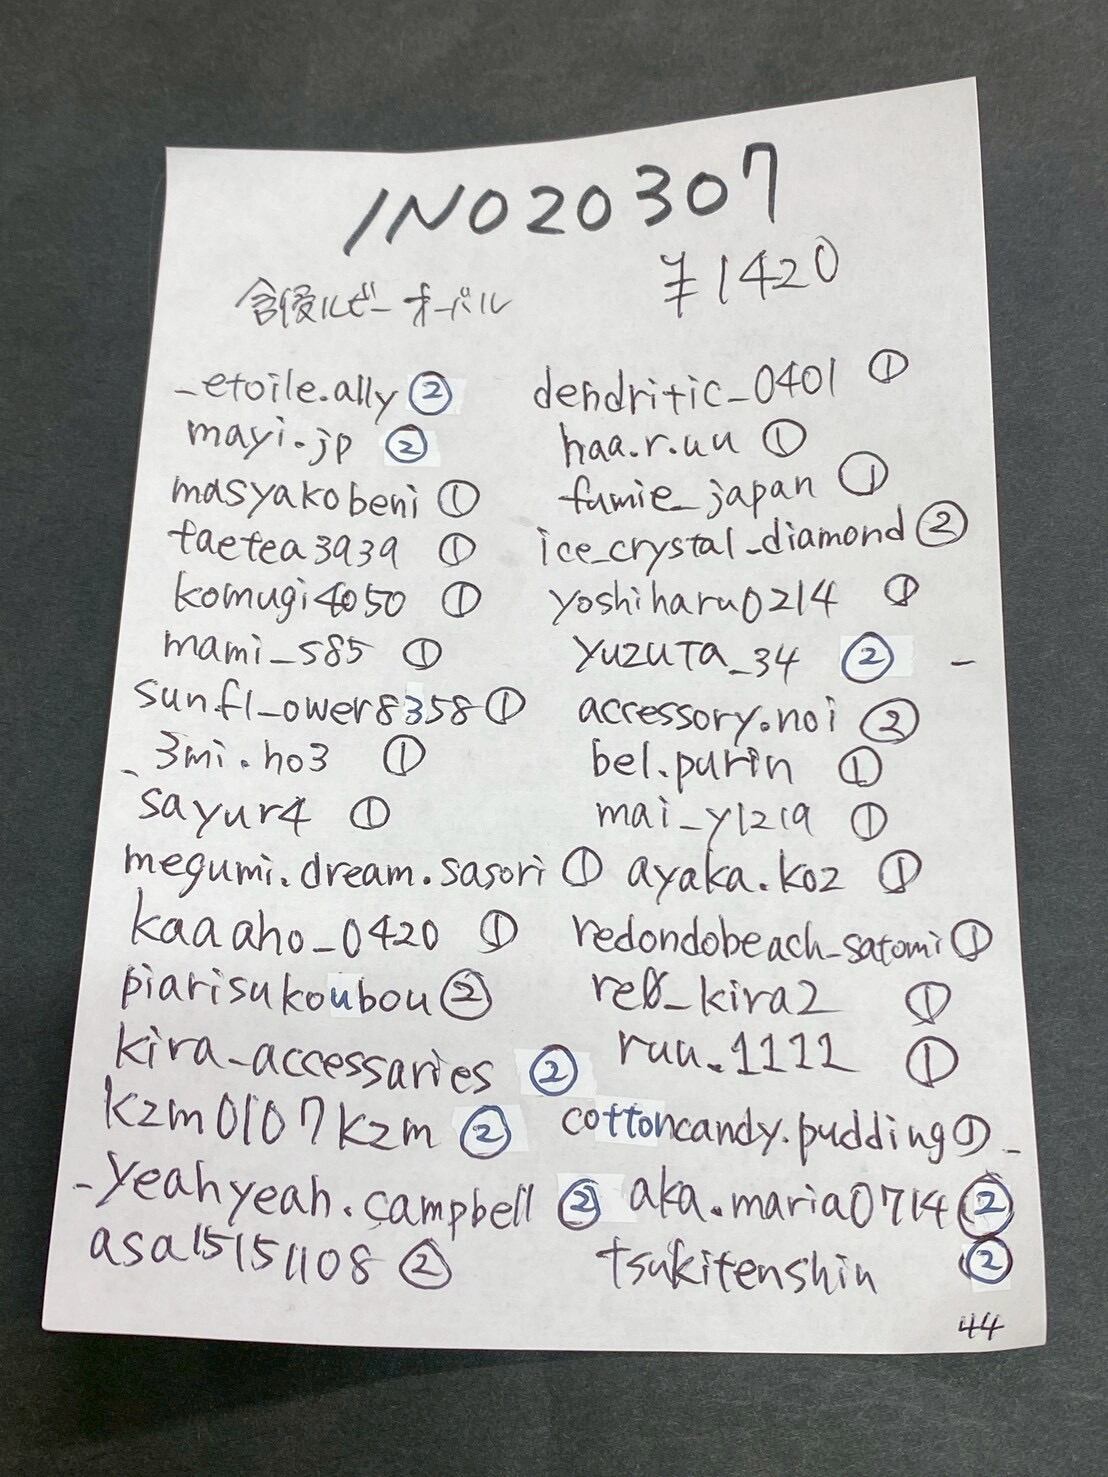 INO20307
¥1420
含侵ルビー オーバル
_etoile.ally ②
mayi.jp ②
masyakobeni ①
taetea3939 ①
komugi4050 ①
mami_s85 ①
sun.fl_ower8358 ①
_3mi.ho3 ①
sayur4 ①
megumi.dream.sasori ①
kaaaho_0420 ①
piarisukoubou ②
kira_accessaries ②
kzm0107kzm ②
_yeahyeah.campbell ②
asa15151108 ②
dendritic_0401 ①
haa.r.uu ①
fumie_japan ①
ice_crystal_diamond ②
yoshiharu0214 ①
yuzuta_34 ② _
accessory.noi ②
bel.purin ①
mai_y1219 ①
ayaka.koz ①
redondobeach_satomi ①
re0_kira2 ①
ruu.1111 ①
cottoncandy.pudding ① _
aka.maria0714 ②
tsukitenshin ②
44